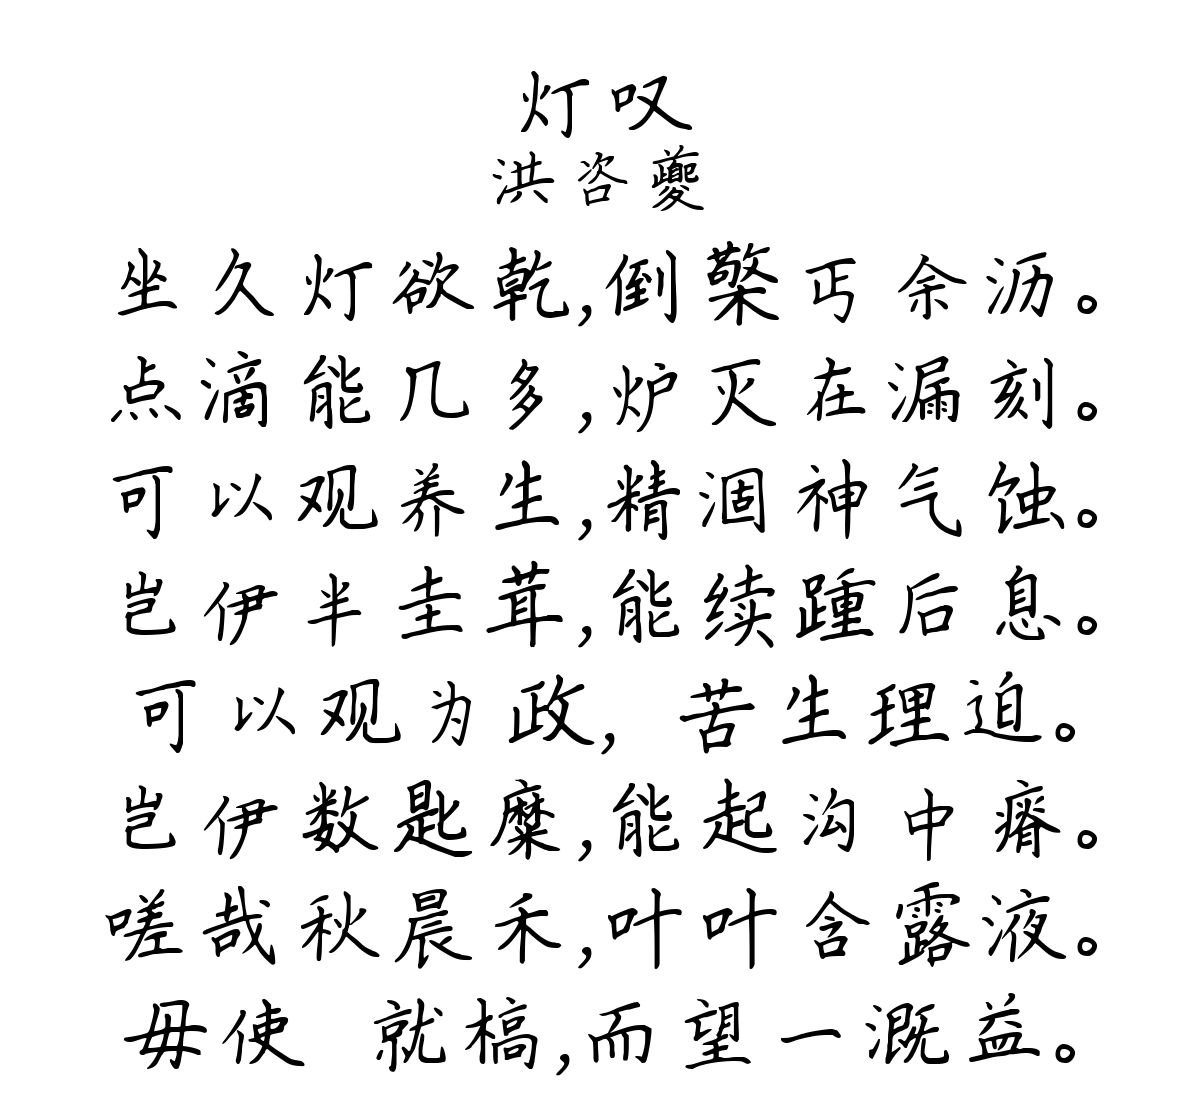 灯叹
洪咨夔
坐久灯欲乾,倒檠丐余沥。
点滴能几多,炉灭在漏刻。
可以观养生,精涸神气蚀。
岂伊半圭茸,能续踵后息。
可以观为政,苦生理迫。
岂伊数匙糜,能起沟中瘠。
嗟哉秋晨禾,叶叶含露液。
毋使 就槁,而望一溉益。